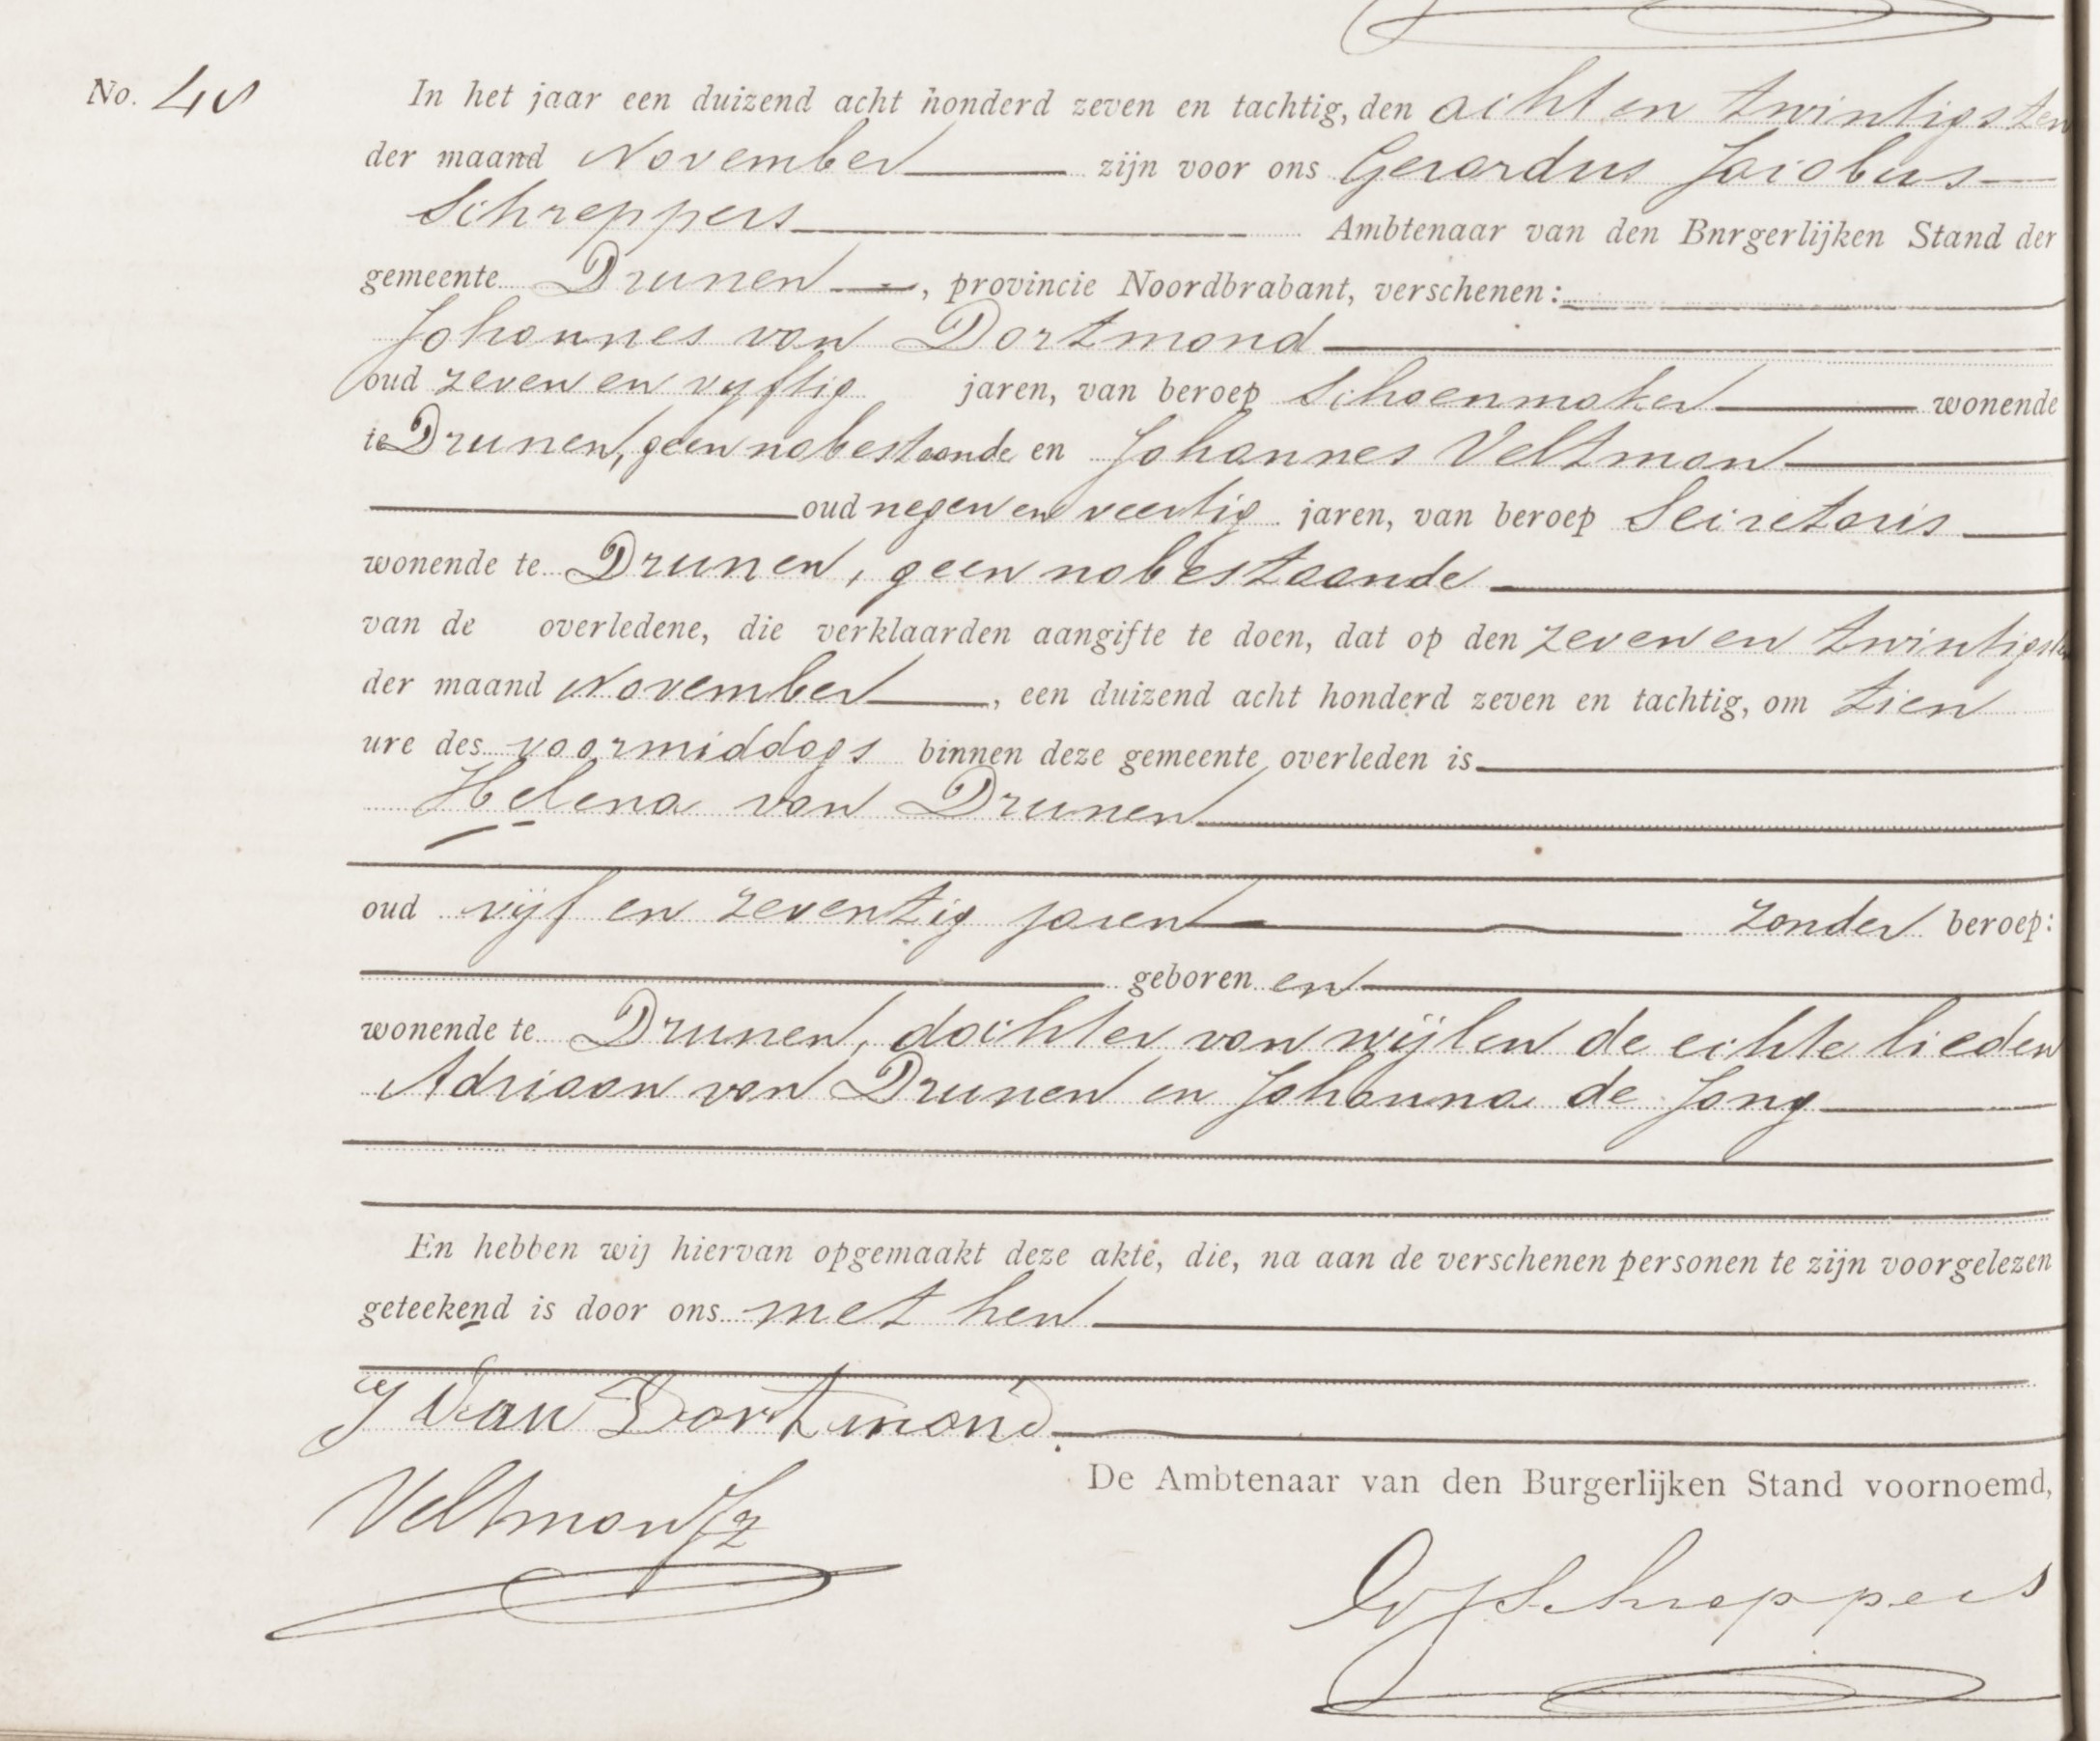 No. 48
In het jaar een duizend acht honderd zeven en tachtig, den acht en twintigsten
der maand November zijn voor ons Gerardus Jacobus
Schreppers Ambtenaar van den Bnrgerlijken Stand der
gemeente Drunen, provincie Noordbrabant, verschenen:
Johannes van Dortmond
oud zeven en vyftig jaren, van beroep Schoenmaker wonende
te Drunen, geen nabestaande en Johannes Veltman
oud negen en veertig jaren, van beroep Secretaris
wonende te Drunen, geen nabestaande
van de overledene, die verklaarden aangifte te doen, dat op den zeven en twintigsten
der maand November, een duizend acht honderd zeven en tachtig, om tien
ure des voormiddags binnen deze gemeente overleden is
Helena van Drunen
oud vijf en zeventig jaren zonder beroep:
geboren en
wonende te Drunen, dochter van wijlen de echte lieden
Adriaan van Drunen en Johanna de Jong
En hebben wij hiervan opgemaakt deze akte, die, na aan de verschenen personen te zijn voorgelezen
geteekend is door ons met hen
J Van Dortmond.
Veltman Jz
De Ambtenaar van den Burgerlijken Stand voornoemd,
GJSchreppers